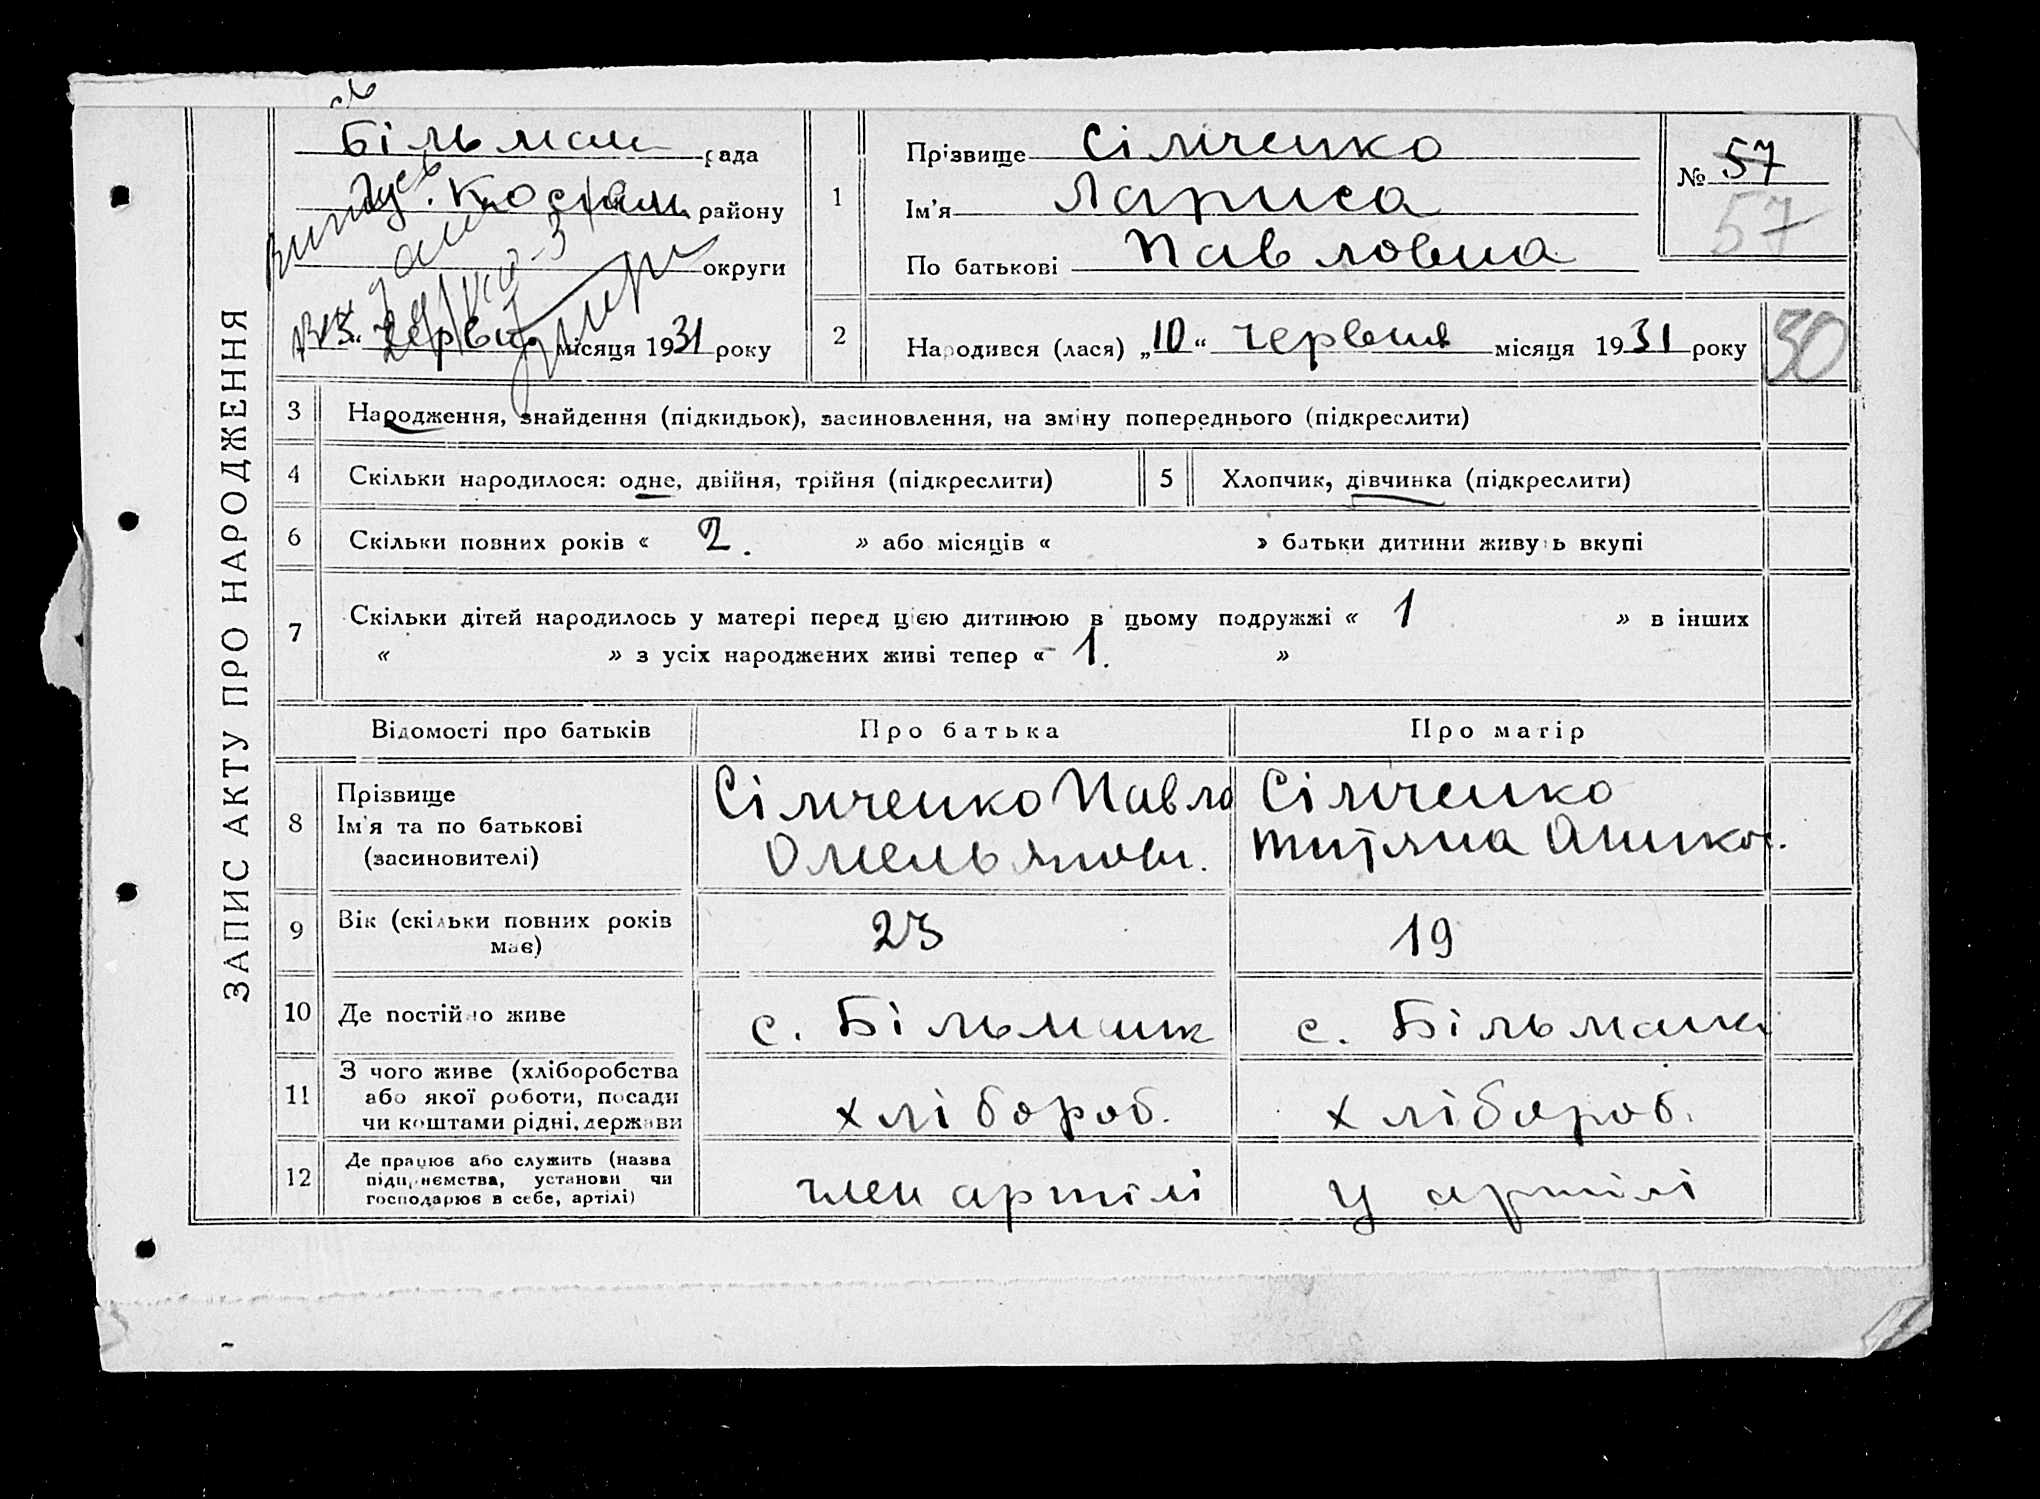 ЗАПИС АКТУ ПРО НАРОДЖЕННЯ
Більман рада
району
округи
червн. місяця 1931 року
1
Прізвище Сімченко
Ім'я Лариса
По батькові Павловна
№ 57
57
2
Народився (лася) „10“ червня місяця 1931 року
30
3 Народження, знайдення (підкидьок), засиновлення, на зміну попереднього (підкреслити)
4 Скільки народилося: одне, двійня, трійня (підкреслити)
5 Хлопчик, дівчинка (підкреслити)
6 Скільки повних років « 2. » або місяців « » батьки дитини живуть вкупі
7 Скільки дітей народилось у матері перед цією дитиною в цьому подружжі « 1 » в інших
« » з усіх народжених живі тепер « 1. »
Відомості про батьків Про батька Про матір
8 Прізвище
Ім'я та по батькові
(засиновителі)
Сімченко Павло
Омельянови.
Сімченко
9 Вік (скільки повних років
має)
23
19
10 Де постійно живе
с. Більманк
с. Більманк
11 З чого живе (хліборобства
або якої роботи, посади
чи коштами рідні, держави
хлібороб.
хлібороб.
12 Де працює або служить (назва
підприємства, установи чи
господарює в себе, артілі)
член артілі
у артілі